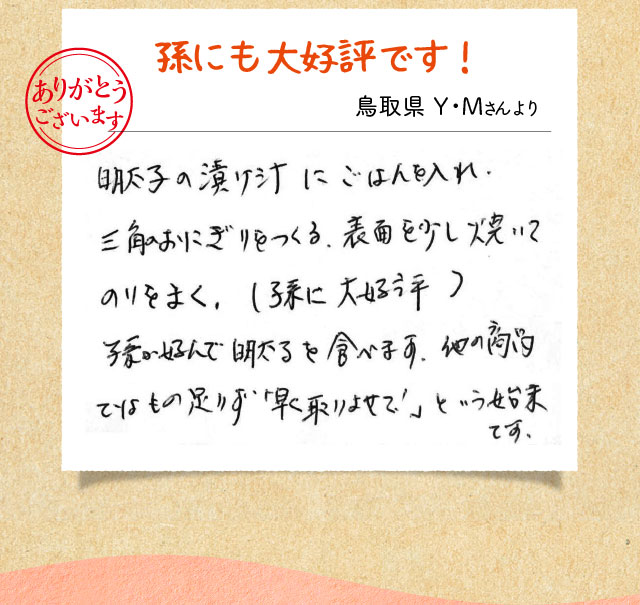 孫にも大好評です！
ありがとう
ございます
鳥取県 Y・Mさんより
明太子の漬け汁にごはんを入れ.
三角のおにぎりをつくる. 表面を少し焼いて
のりをまく. (孫に大好評)
孫が好んで明太子を食べます. 他の商品
ではもの足りず「早く取りよせて!」という始末
です.